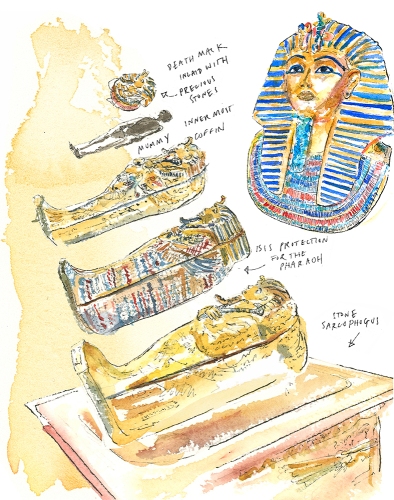 DEATH MASK
INLAID WITH
PRECIOUS
STONES
INNERMOST
COFFIN
MUMMY
ISIS PROTECTION
FOR THE
PHARAOH
STONE
SARCOPHOGUS